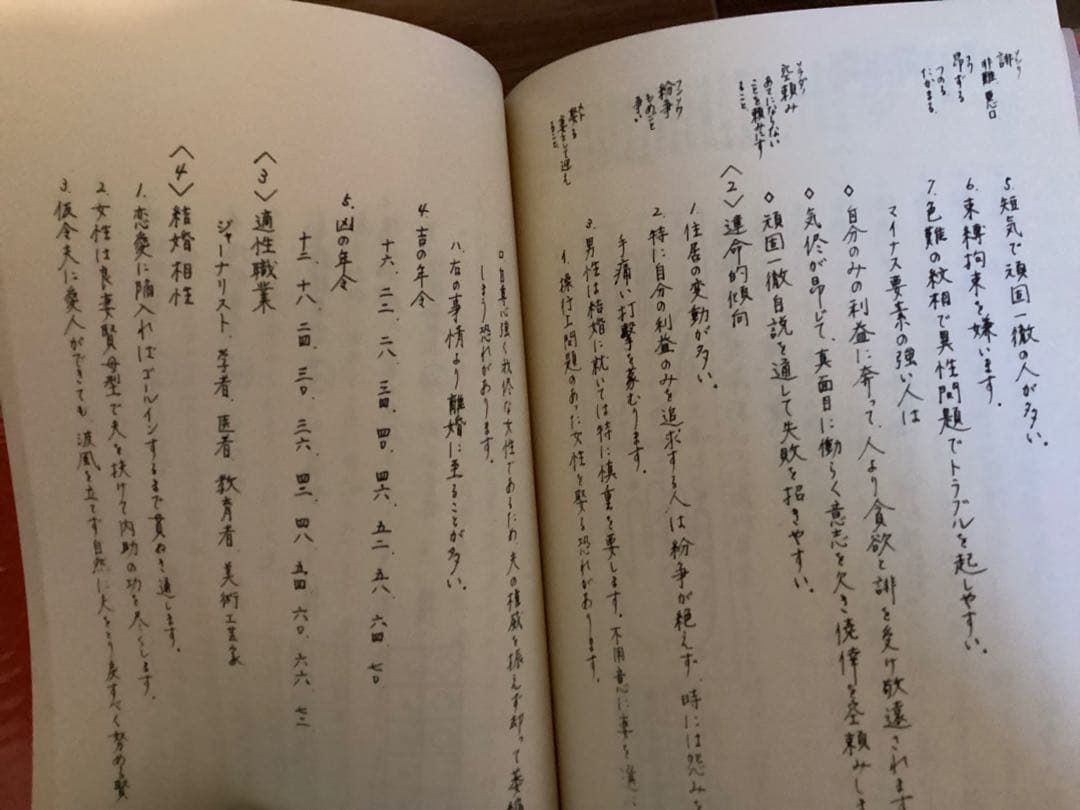 誹 ソシリ
非難、悪口
昂ずる コウ
つのる
たかまる
空頼み ソラダノ
あてにならない
ことを頼みにす
ること
紛争 フンソウ
もめごと
争い
娶る メト
妻として迎え
ること
5. 短気で頑固一徹の人が多い。
6. 束縛拘束を嫌います。
7. 色難の紋相で異性問題でトラブルを起しやすい。
マイナス要素の強い人は
◇ 自分のみの利益に奔って、人より貪欲と誹を受け敬遠されます
◇ 気侭が昂じて、真面目に働らく意志を欠き僥倖を空頼みしま
◇ 頑固一徹自説を通して失敗を招きやすい。
〈2〉運命的傾向
1. 住居の変動が多い。
2. 特に自分の利益のみを追求する人は紛争が絶えず、時には怨みを
手痛い打撃を蒙むります。
3. 男性は結婚に就いては特に慎重を要します。不用意に妻を選
イ. 操行上問題のあった女性を娶る恐れがあります。
ロ. 自尊心強く我侭な女性であるため、夫の権威を振えず却って萎縮
しまう恐れがあります。
ハ. 右の事情より離婚に至ることが多い。
4. 吉の年令
十六、二二、二八、三四、四〇、四六、五二、五八、六四、七〇
5. 凶の年令
十二、十八、二四、三〇、三六、四二、四八、五四、六〇、六六、七二
〈3〉適性職業
ジャーナリスト、学者、医者、教育者、美術工芸家
〈4〉結婚相性
1. 恋愛に陥入ればゴールインするまで貫ぬき通します。
2. 女性は良妻賢母型で夫を扶けて内助の功を尽くします。
3. 仮令夫に愛人ができても、波風を立てず自然に夫をとり戻すべく努める賢